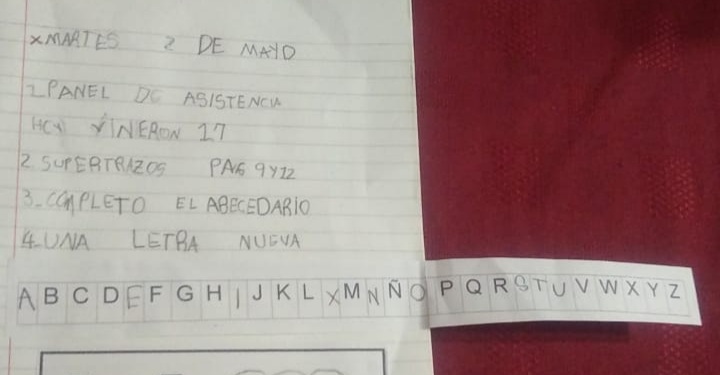 X MARTES 2 DE MAYO
1 PANEL DE ASISTENCIA
HOY VINERON 17
2 SUPERTRAZOS PAG 9 Y 12
3. COMPLETO EL ABECEDARIO
4. UNA LETRA NUEVA
A B C D E F G H I J K L X M N Ñ O P Q R S T U V W X Y Z